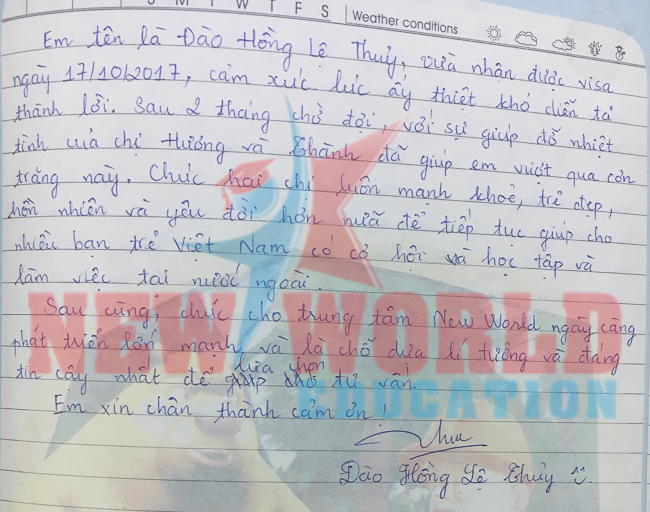 S M T W T F S Weather conditions
Em tên là Đào Hồng Lệ Thuỷ, vừa nhận được visa
ngày 17/10/2017, cảm xúc lúc ấy thiệt khó diễn tả
thành lời. Sau 2 tháng chờ đợi, với sự giúp đỡ nhiệt
tình của chị Hương và Thành đã giúp em vượt qua cơn
trăng này. Chúc hai chị luôn mạnh khoẻ, trẻ đẹp,
hồn nhiên và yêu đời hơn nữa để tiếp tục giúp cho
nhiều bạn trẻ Việt Nam có cơ hội và học tập và
làm việc tại nước ngoài.
Sau cùng, chúc cho trung tâm New World ngày càng
phát triển lớn mạnh và là chỗ dựa lí tưởng và đáng
lựa chọn
tin cậy nhất để giúp tư vấn.
Em xin chân thành cảm ơn!
Đào Hồng Lệ Thuỷ
NEW WORLD
EDUCATION